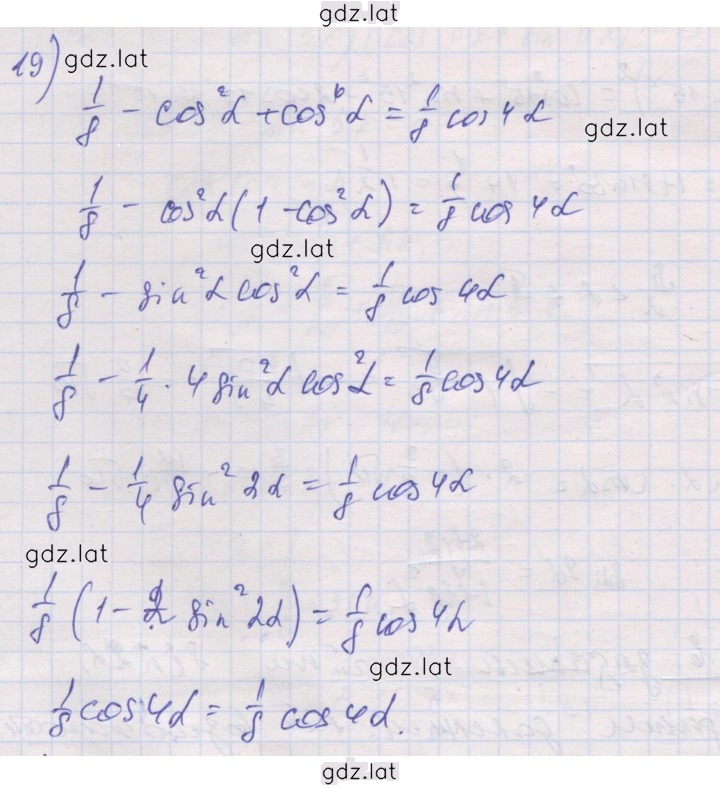 gdz.lat
19) gdz.lat
1/8 - cos²α + cos⁴α = 1/8 cos 4α
gdz.lat
1/8 - cos²α (1 - cos²α) = 1/8 cos 4α
gdz.lat
1/8 - sin²α cos²α = 1/8 cos 4α
1/8 - 1/4 · 4 sin²α cos²α = 1/8 cos 4α
1/8 - 1/4 sin²2α = 1/8 cos 4α
gdz.lat
1/8 (1 - 2 sin²2α) = 1/8 cos 4α
gdz.lat
1/8 cos 4α = 1/8 cos 4α.
gdz.lat